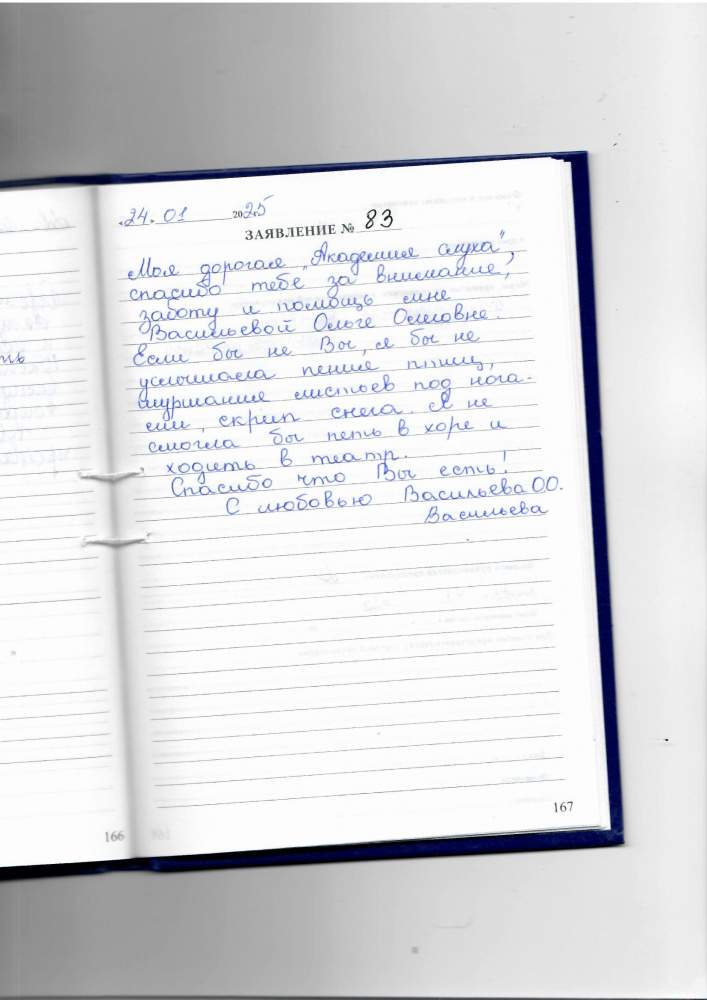 ть
«24» 01 2025
ЗАЯВЛЕНИЕ № 83
Моя дорогая „Академия слуха",
спасибо тебе за внимание,
заботу и помощь мне
Васильевой Ольге Олеговне.
Если бы не Вы, я бы не
услышала пение птиц,
шуршание листьев под нога-
ми, скрип снега. Я не
смогла бы петь в хоре и
ходить в театр.
Спасибо что Вы есть!
С любовью Васильева О.О.
Васильева
166
167